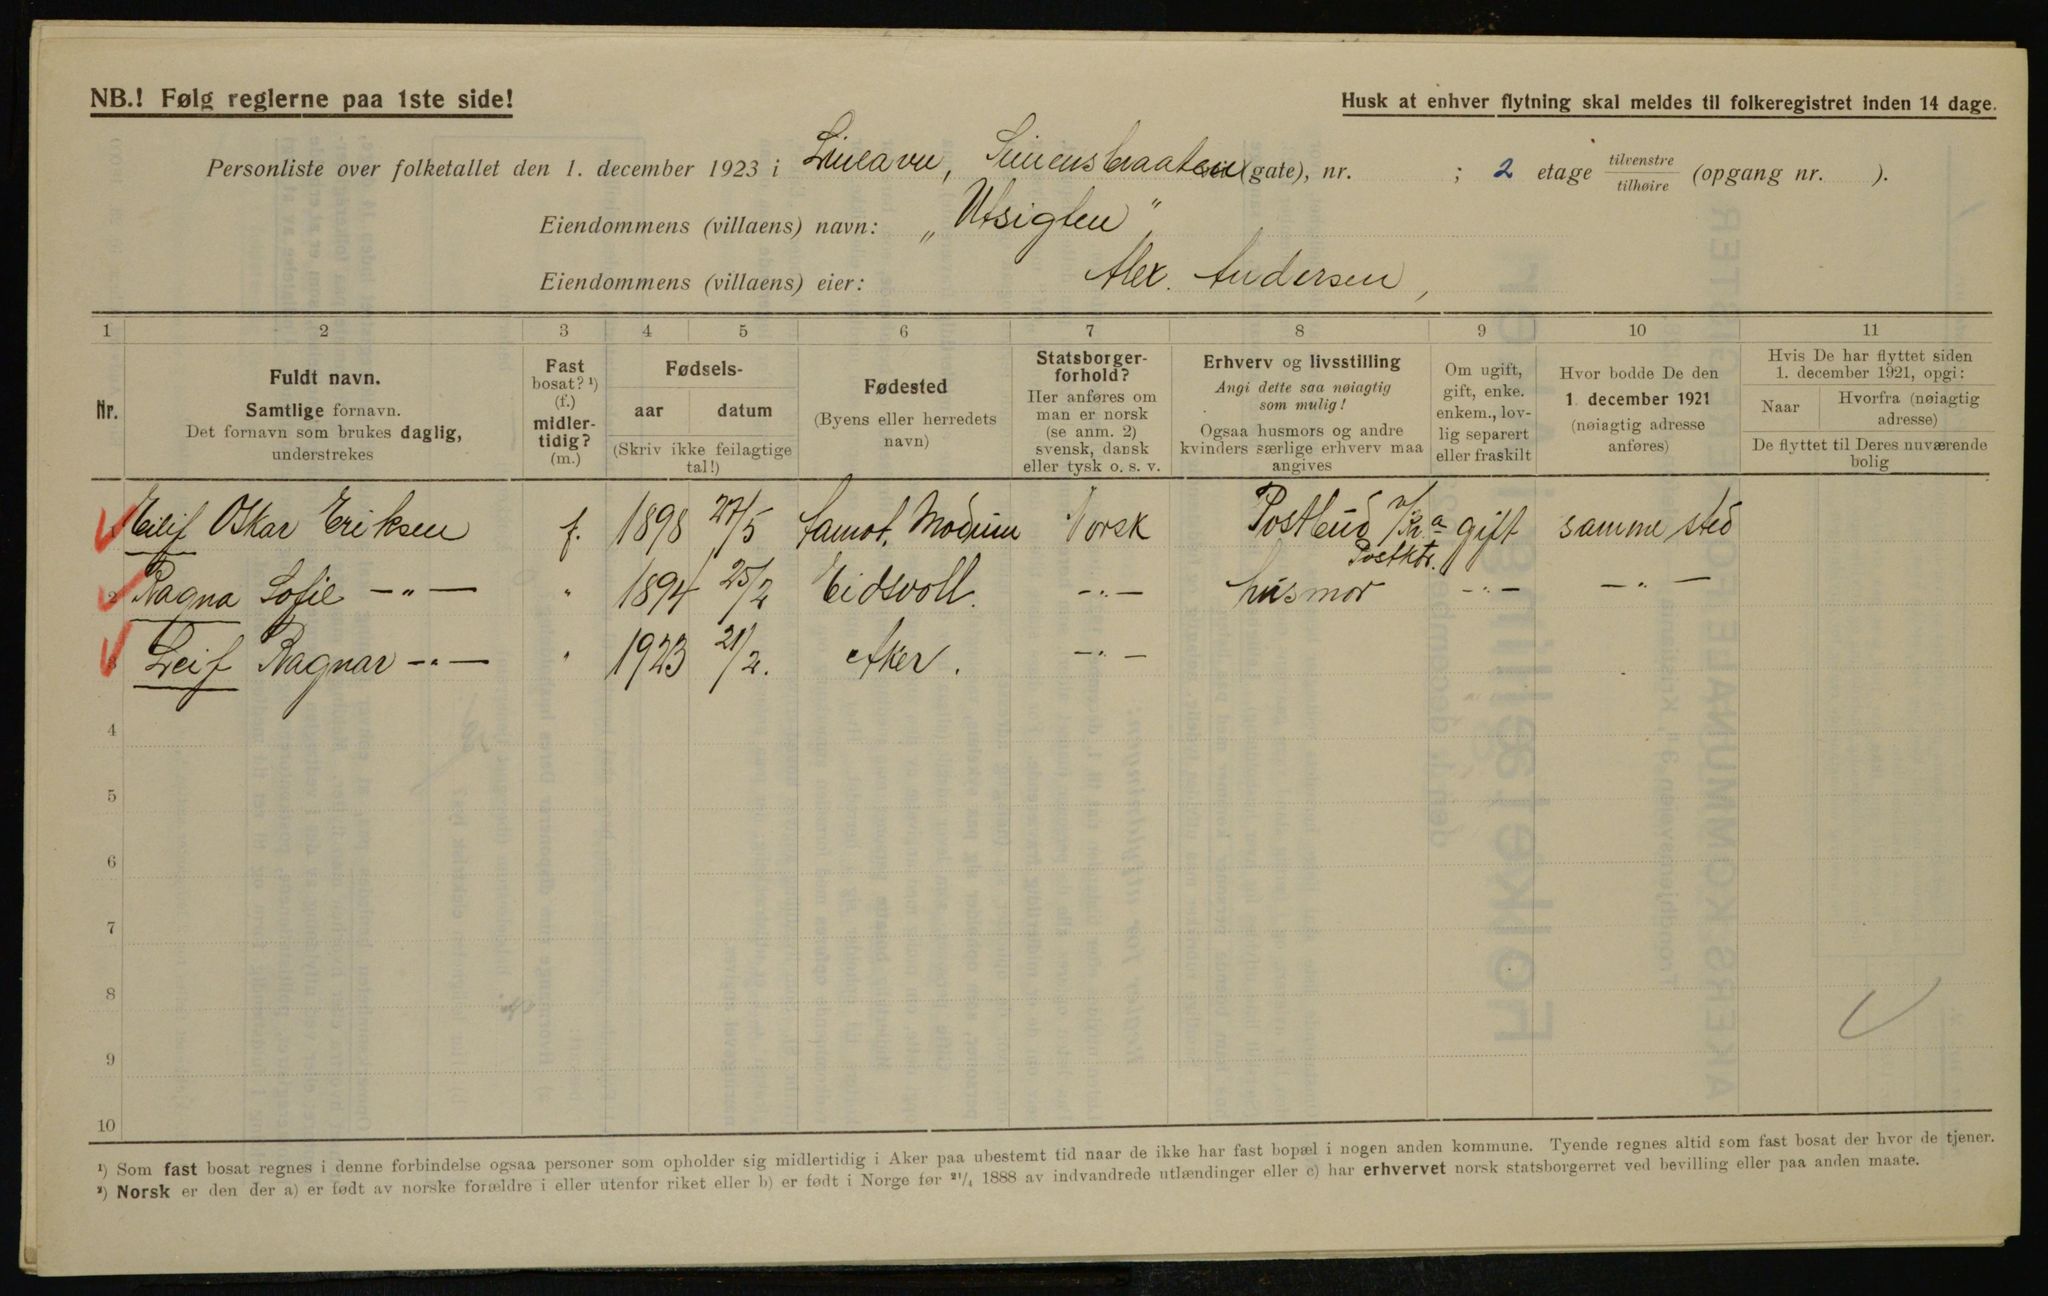 NB.! Følg reglerne paa 1ste side!
Husk at enhver flytning skal meldes til folkeregistret inden 14 dage.
Personliste over folketallet den 1. december 1923 i (gate), nr. ; 2 etage tilvenstre/tilhøire (opgang nr. ).
Eiendommens (villaens) navn: „Utsigten"
Eiendommens (villaens) eier: Alex. Andersen,
1 2 3 4 5 6 7 8 9 10 11
Nr.
Fuldt navn.
Samtlige fornavn.
Det fornavn som brukes daglig,
understrekes
Fast
bosat? ¹)
(f.)
midler-
tidig?
(m.)
Fødsels-
aar datum
(Skriv ikke feilagtige
tal!)
Fødested
(Byens eller herredets
navn)
Statsborger-
forhold?
Her anføres om
man er norsk
(se anm. 2)
svensk, dansk
eller tysk o. s. v.
Erhverv og livsstilling
Angi dette saa nøiagtig
som mulig!
Ogsaa husmors og andre
kvinders særlige erhverv maa
angives
Om ugift,
gift, enke.
enkem., lov-
lig separert
eller fraskilt
Hvor bodde De den
1. december 1921
(nøiagtig adresse
anføres)
Hvis De har flyttet siden
1. december 1921, opgi:
Naar
Hvorfra (nøiagtig
adresse)
De flyttet til Deres nuværende
bolig
Eilif Oskar Eriksen f. 1898 27/5 Modum Norsk Postbud v/Kr.a Postktr. gift samme sted
2 Ragna Sofie —"— " 1894 25/2 Eidsvoll. —"— husmor —"— —"—
3 Leif Ragnar —"— " 1923 21/2. Aker. —"—
4
5
6
7
8
9
10
¹) Som fast bosat regnes i denne forbindelse ogsaa personer som opholder sig midlertidig i Aker paa ubestemt tid naar de ikke har fast bopæl i nogen anden kommune. Tyende regnes altid som fast bosat der hvor de tjener.
²) Norsk er den der a) er født av norske forældre i eller utenfor riket eller b) er født i Norge før ²¹/₄ 1888 av indvandrede utlændinger eller c) har erhvervet norsk statsborgerret ved bevilling eller paa anden maate.